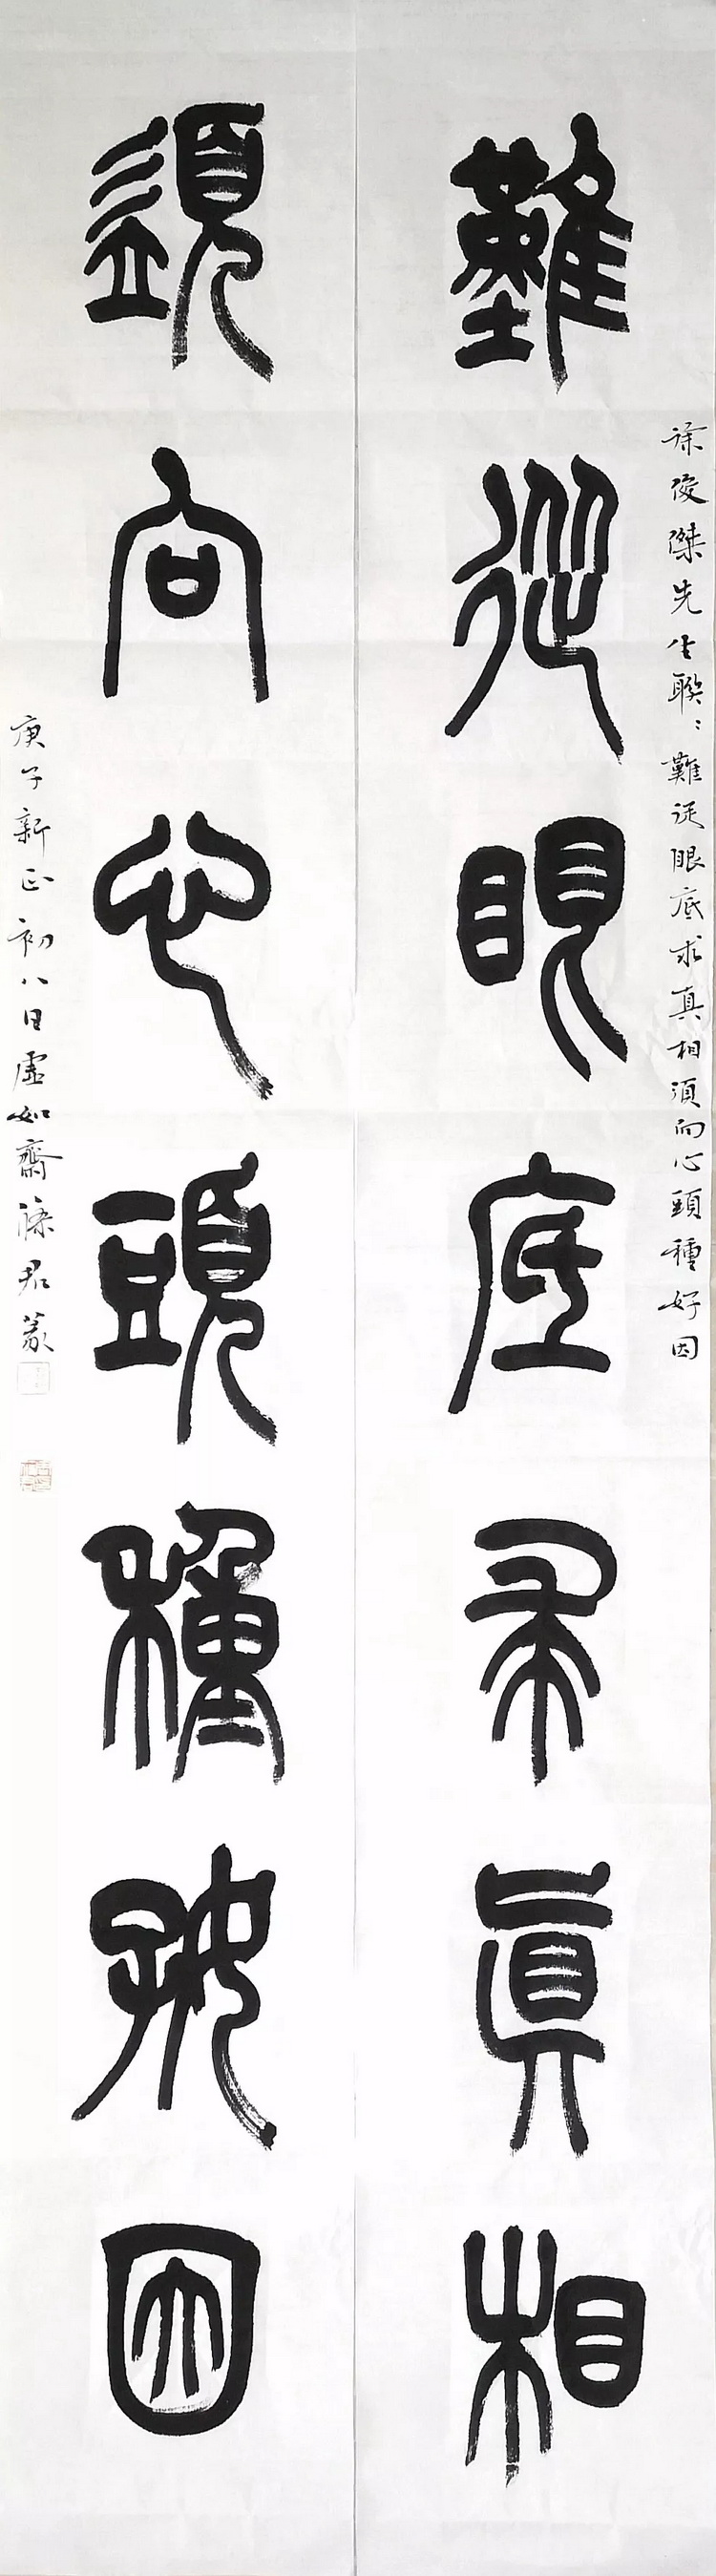 徐俊傑先生聯：難從眼底求真相須向心頭種好因
難從眼底求眞相
須向心頭種好因
庚子新正初八日虛如齋滌君篆